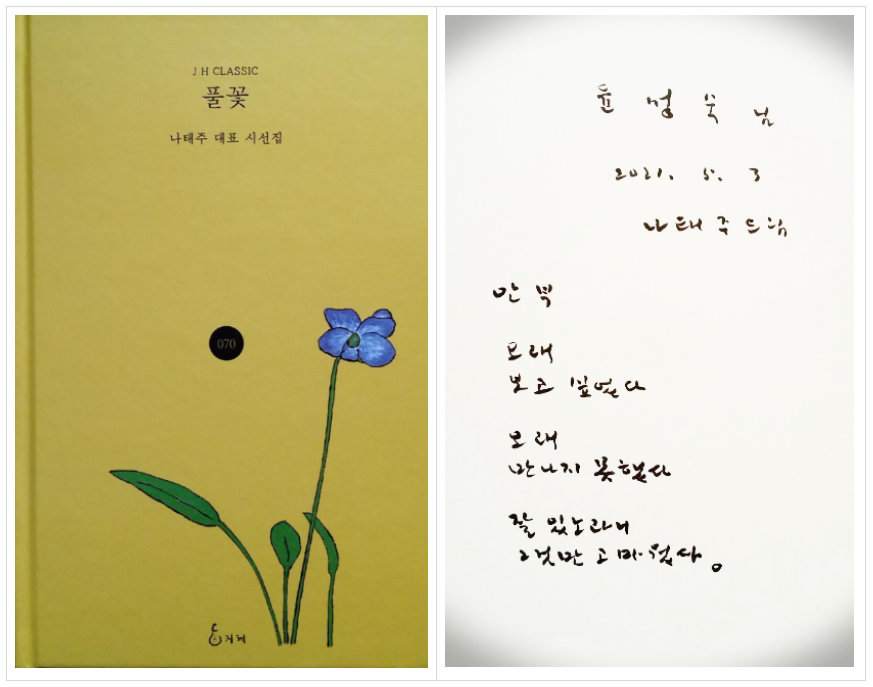 J.H CLASSIC
풀꽃
나태주 대표 시선집
070
지혜
윤정숙 님
2021. 5. 3
나태주 드림
안부
오래
보고 싶었다
오래
만나지 못했다
잘 있노라니
그것만 고마웠다。